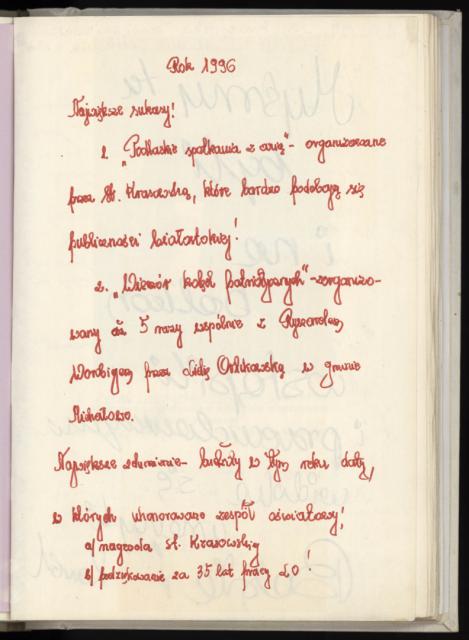 Rok 1996
Największe sukcesy!
1. „Podlaskie spotkania z
organizowane
przez St. Krasowską, które bardzo podobają się
publiczności białostockiej!
2. „Wieczór kolęd patriotycznych" - zorganizo-
wany aż 5 razy wspólnie z Ryszardem
przez Lidię Orlikowską w gminie
Michałowo.
Największe zdumienie - budziły w tym roku daty,
w których uhonorowano zespół oświatowy!
a/ nagroda St. Krasowskiej
b/ podziękowanie za 35 lat pracy LO!